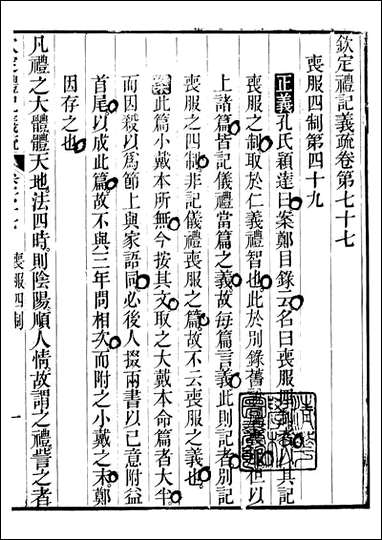 欽定禮記義疏卷第七十七
喪服四制第四十九
正義孔氏穎達曰案鄭目錄云名曰喪服四制者以其記
喪服之制取於仁義禮智也此於別錄舊說屬喪服但以
上諸篇皆記儀禮當篇之義故每篇言義此則記者別記
喪服之四制非記儀禮喪服之篇故不云喪服之義也
案此篇小戴本所無今按其文取之大戴本命篇者大半
而因殺以爲節上與家語同必後人掇兩書以己意附益
首尾以成此篇故不與三年問相次而附之小戴之末鄭
因存之也
凡禮之大體體天地法四時則陰陽順人情故謂之禮訾之者
欽定禮記義疏
喪服四制
一